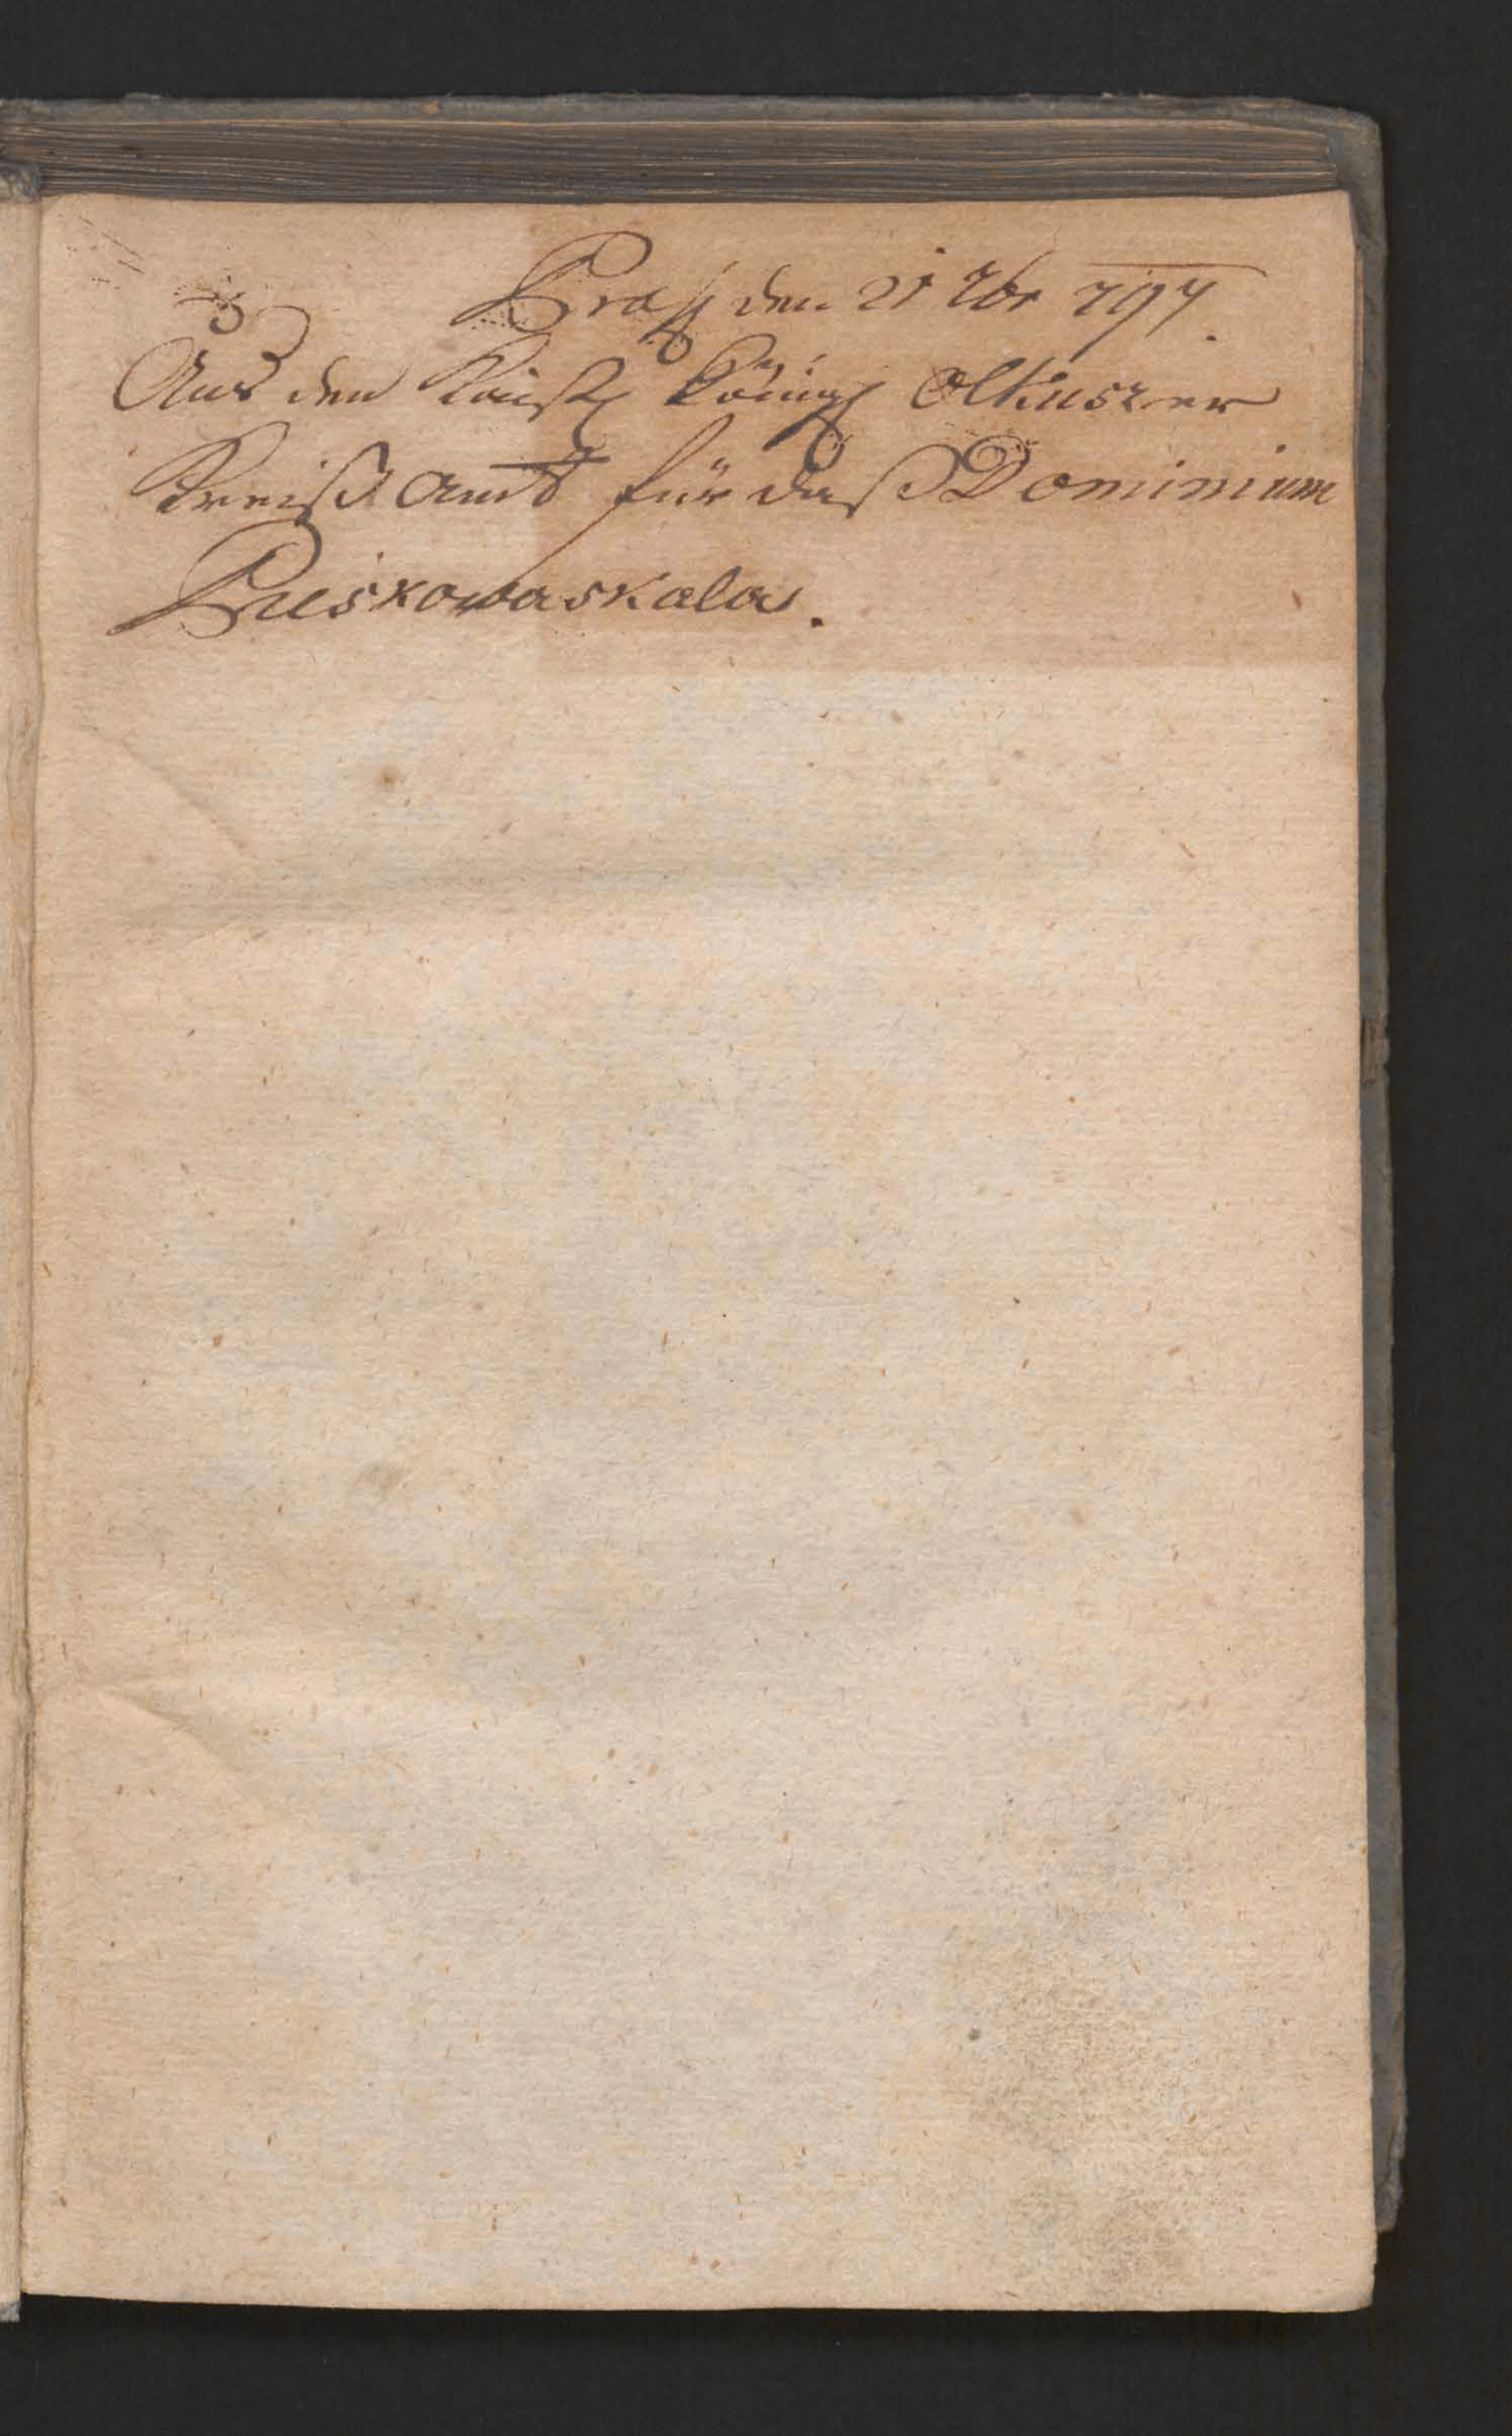 den 21 797.
Aus den Kaiserl Königl Olkuszer
Kreis Amt für das Dominium
Pieskowaskala.